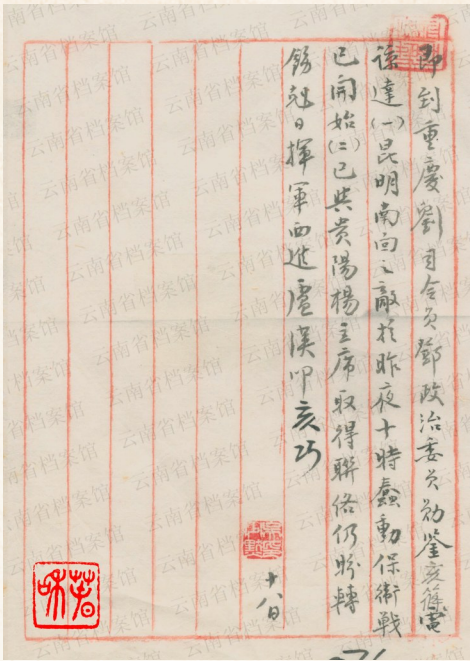 即到重慶劉司令員鄧政治委員勛鑒亥篠電
諒達(一)昆明南向之敵於昨夜十時蠢動保衛戰
已開始(二)已與貴陽楊主席取得聯絡仍盼轉
飭尅日揮軍西進盧漢叩亥巧
十八日
雲南省档案馆